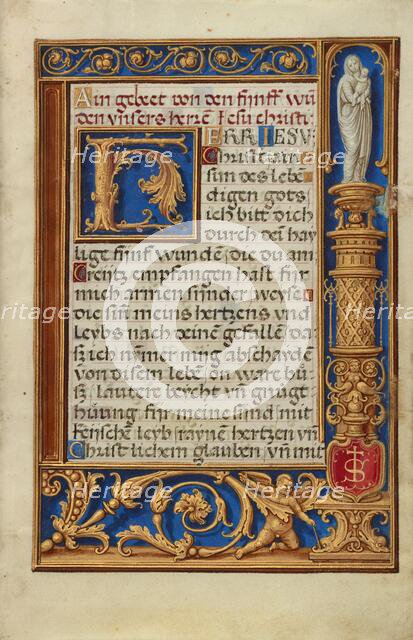 Ain gebeet von den fünff wū
den vnsers herrē Jesu christi:
HERR IESV
Christ ain
sun des lebē
digen gots
ich bitt dich
durch den hay
lige fünf wunden die du am
Creütz empfangen hast für
mich armen sünder weyse
die sin meins hertzens vnd
leybs nach deinē gefallē da
sz ich nymer ming abschayden
von disem lebē on ware bu
sz lautere beycht vn̄ gnug
thüung für meine sünd mit
keüschē leyb raynē hertzen vn̄
Christlichem glauben vn̄ mit
IS
Heritage
Heritage
Heritage
Heritage
Heritage
Heritage
Heritage
Heritage